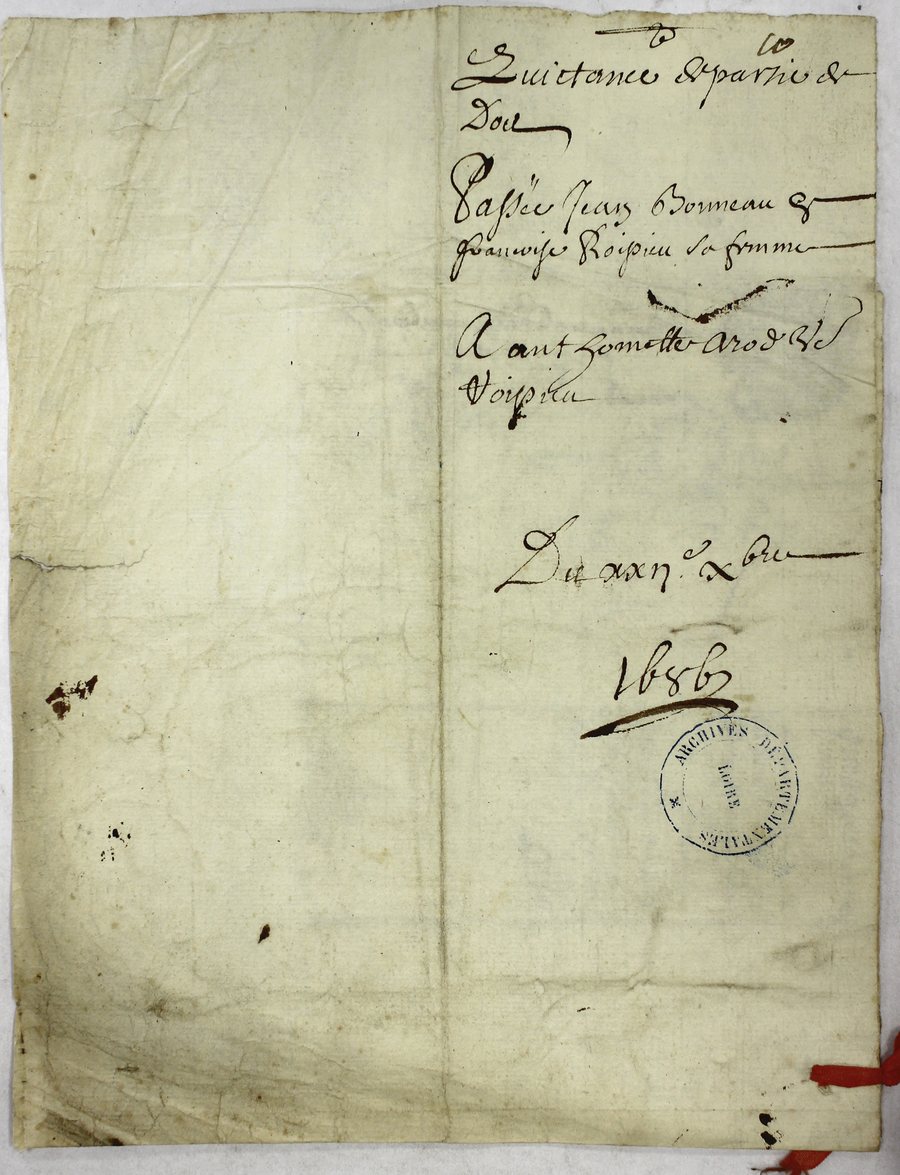 10
Quictance de partie de
Dot
Passée Jean Bonneau &
francoise Voispieu sa femme
A anthomette arod vᵉ
Voispieu
Du xxııᵉ xbre
1686
ARCHIVES DÉPARTEMENTALES
LOIRE